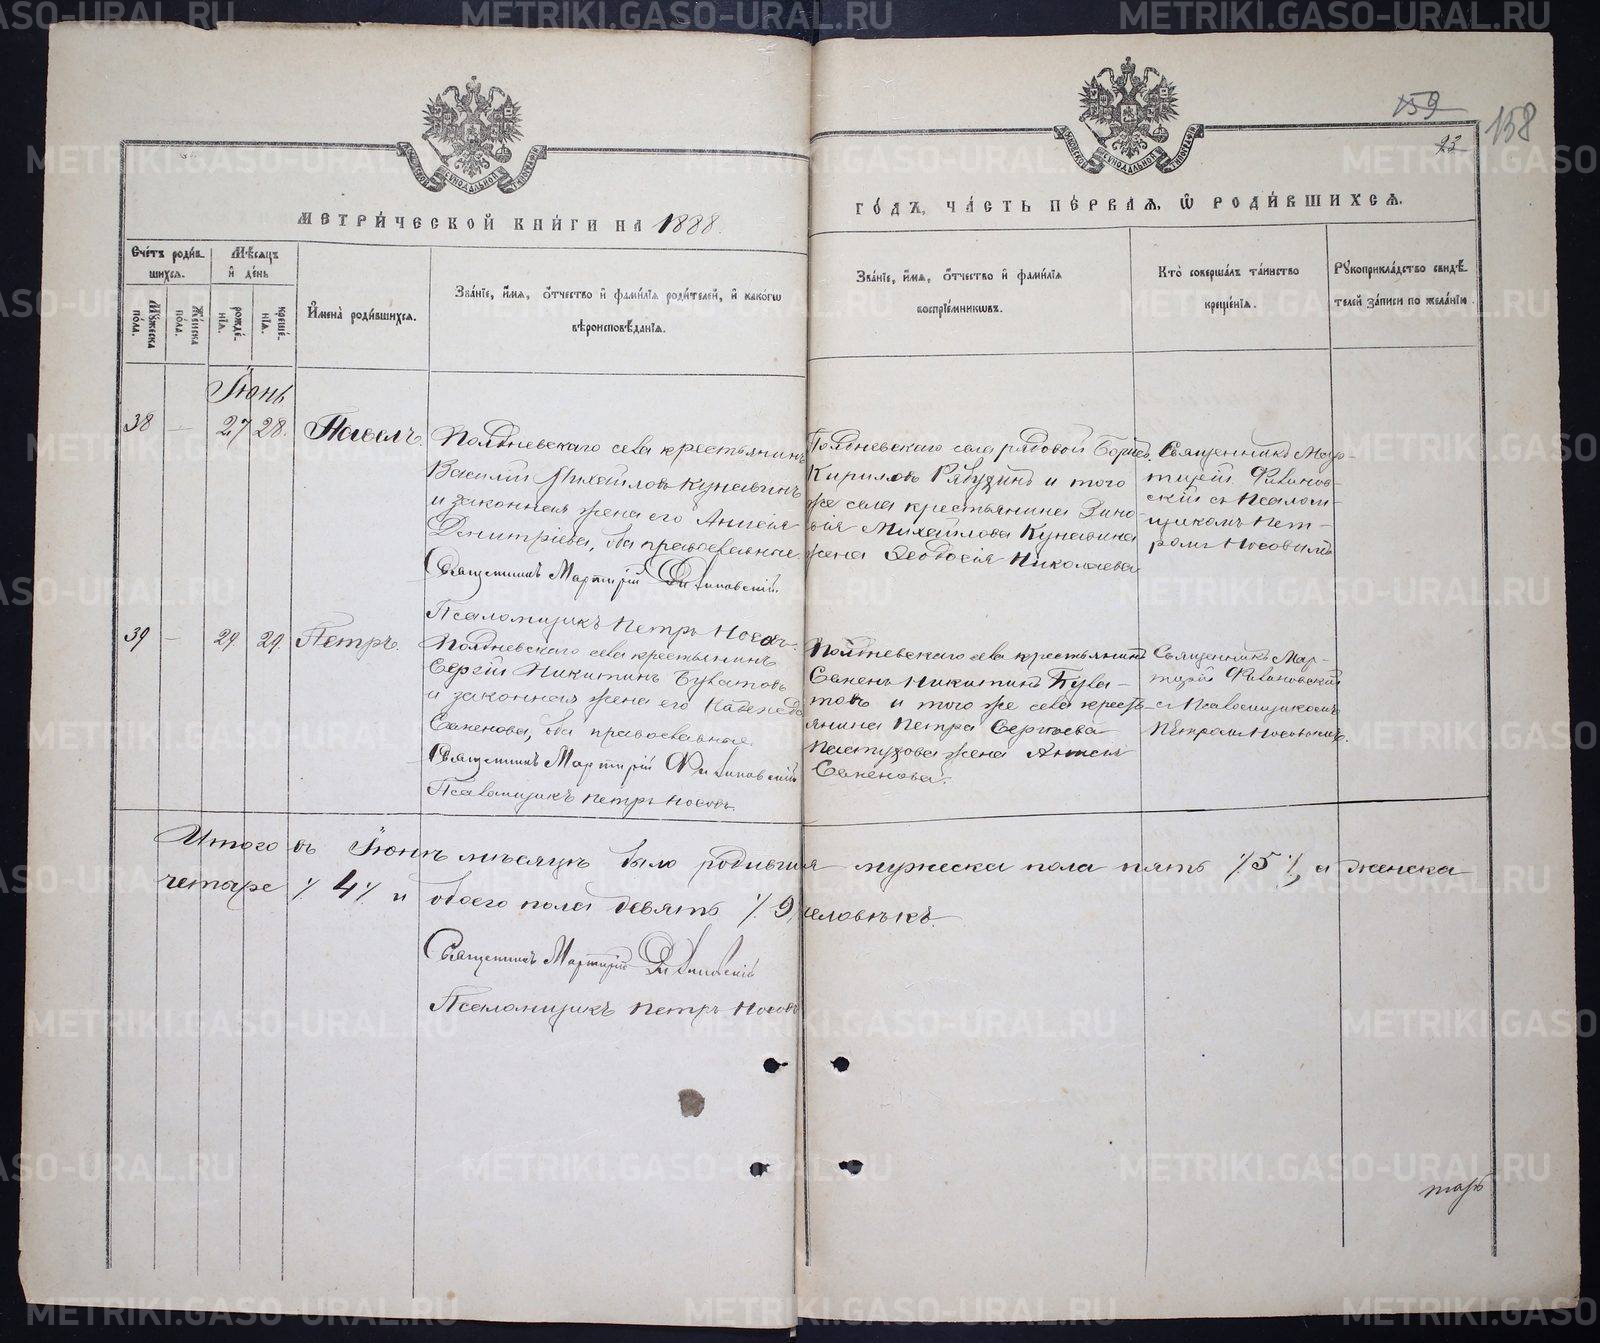 159
158
23
МЕТРИ́ЧЕСКОЙ КНИ́ГИ НА 1888.
ГО́ДЪ, ЧА́СТЬ ПЕ́РВАЯ, Ѡ РОДИ́ВШИХСЯ.
Сче́тъ роди́в-
шихся.
Му́жеска по́ла.
Же́нска по́ла.
Мѣ́сяцъ
и де́нь
рожде́-
нія.
креще́-
нія.
Имена̀ роди́вшихся.
Зва́ніе, и́мя, о́тчество и фами́лія роди́телей, и како́гѡ
вѣроисповѣ́данія.
Зва́ніе, и́мя, о́тчество и фами́лія
воспріе́мниковъ.
Кто̀ соверша́лъ та́инство
креще́нія.
Рукоприкла́дство свидѣ́-
телей за́писи по жела́нію.
Іюнь
38 — 27 28. Павелъ.
Полдневскаго села крестьянинъ
Василій Михайловъ Кунавинъ
и законная жена его Анисія
Димитріева, оба православные
Священникъ Мартирій
Псаломщикъ Петръ Носовъ.
Полдневскаго села рядовой Борисъ
Кириловъ Рябухинъ и того
же села крестьянина Зино-
вія Михайлова Кунавина
жена Ѳеодосія Николаева
Священникъ Мар-
тирій
скій съ Псалом-
щикомъ Пет-
ромъ Носовымъ
39 — 29. 29. Петръ.
Полдневскаго села крестьянинъ
Сергій Никитинъ
и законная жена его Надежда
Семенова, оба православные.
Священникъ Мартирій
Псаломщикъ Петръ Носовъ.
Полдневскаго села крестьянинъ
Семенъ Никитинъ
и того же села кресть-
янина Петра Сергѣева
Пастухова жена
Семенова.
Священникъ Мар-
тирій
съ Псаломщикомъ
Петромъ Носовымъ.
Итого въ Іюнѣ мѣсяцѣ было родившихся мужеска пола пять /5/, а женска
четыре /4/ и обоего пола девять /9/ человѣкъ.
Священникъ Мартирій
Псаломщикъ Петръ Носовъ